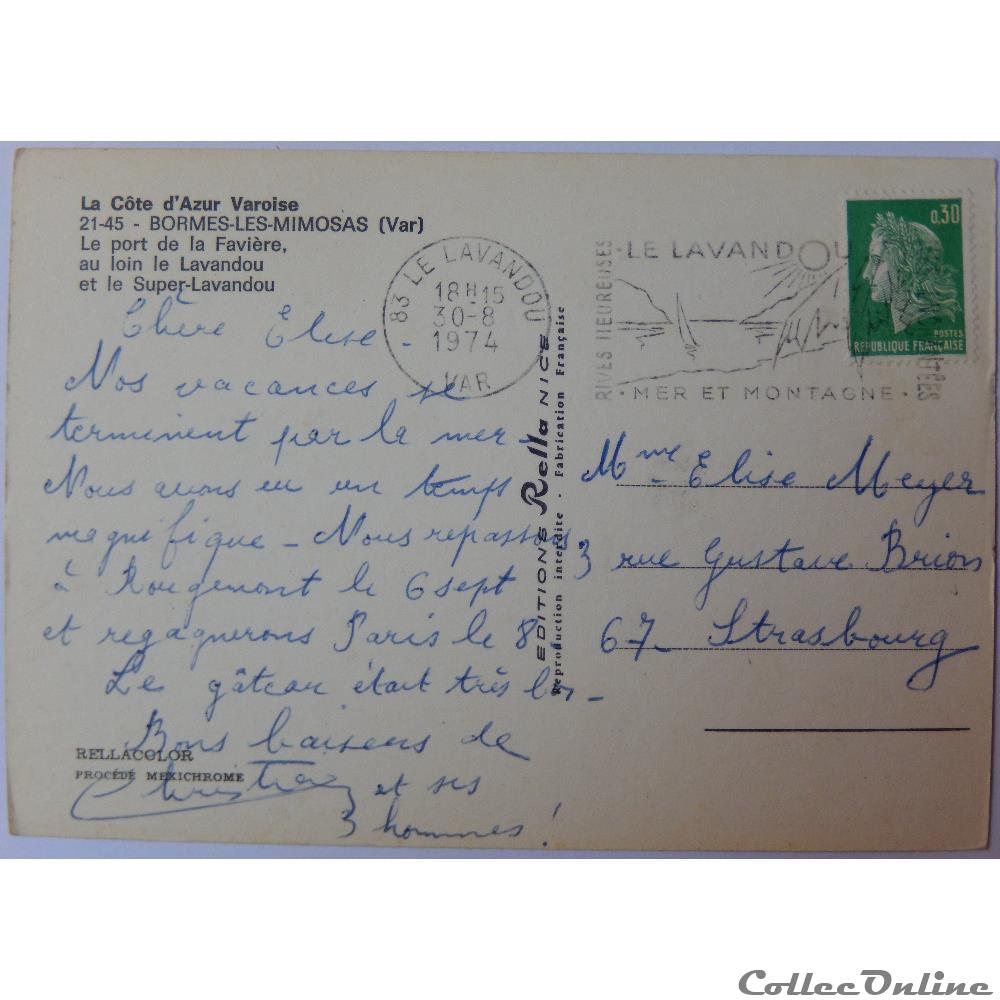 La Côte d'Azur Varoise
21-45 - BORMES-LES-MIMOSAS (Var)
Le port de la Favière,
au loin le Lavandou
et le Super-Lavandou
83 LE LAVANDOU
18H15
30-8
1974
VAR
RIVES HEUREUSES
·LE LAVANDOU
·MER ET MONTAGNE·
0,30
POSTES
REPUBLIQUE FRANÇAISE
Chère Elise -
Nos vacances se
terminent par la mer -
Nous avons eu un temps
magnifique - Nous repassons
à Rougemont le 6 sept
et regagnerons Paris le 8 -
Le gâteau était très bon -
Bons baisers de
et ses
3 hommes!
RELLACOLOR
PROCÉDÉ MEXICHROME
EDITIONS Rella NICE
Reproduction interdite - Fabrication Française
Mme Elise Meyer
3 rue Gustave Brion
67 - Strasbourg
CollecOnline